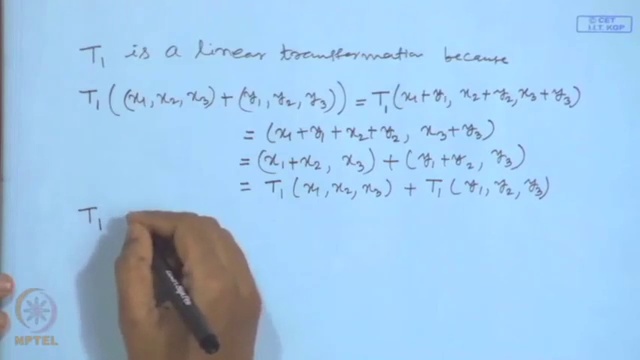 © CET
I.I.T. KGP
T₁ is a linear transformation because
T₁((x₁, x₂, x₃) + (y₁, y₂, y₃)) = T₁(x₁+y₁, x₂+y₂, x₃+y₃)
= (x₁+y₁+x₂+y₂, x₃+y₃)
= (x₁+x₂, x₃) + (y₁+y₂, y₃)
= T₁(x₁, x₂, x₃) + T₁(y₁, y₂, y₃)
T₁
NPTEL